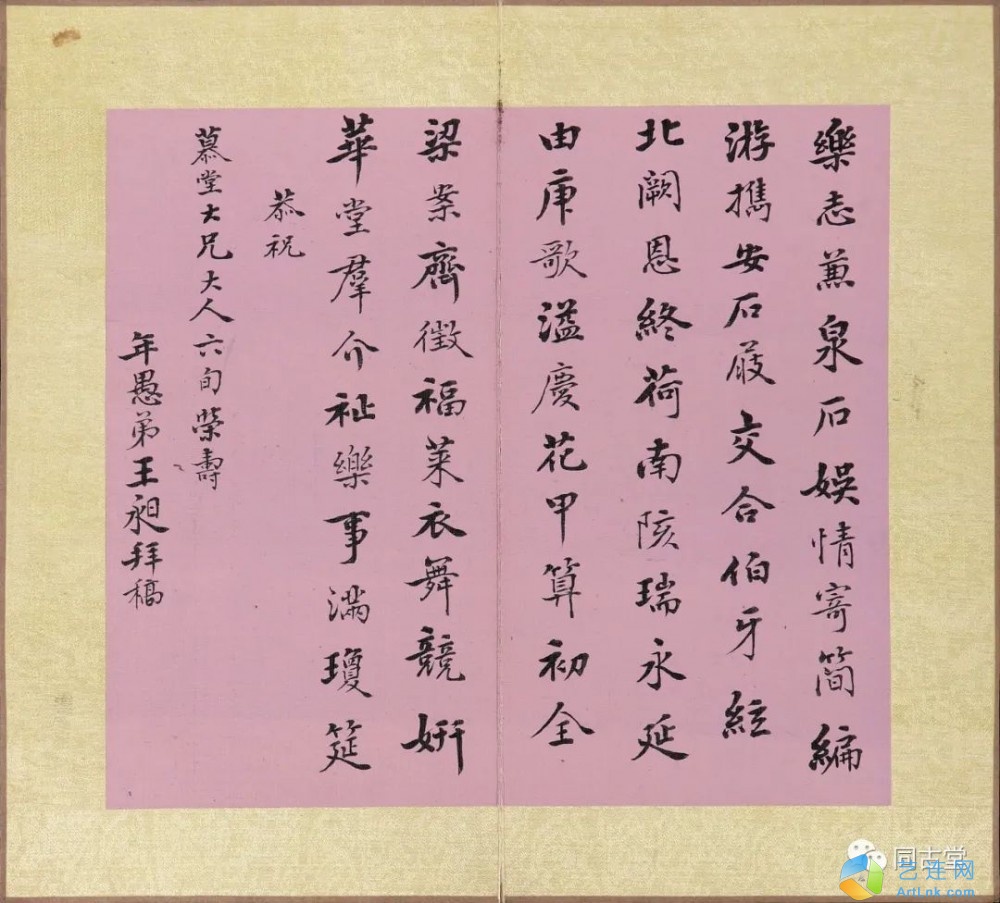 樂志兼泉石娱情寄簡編
游攜安石屐交合伯牙絃
北闕恩終荷南陔瑞永延
由庚歌溢慶花甲算初全
梁案齊徵福萊衣舞競妍
華堂羣介祉樂事滿瓊筵
恭祝
慕堂大兄大人六旬榮壽
年愚弟王昶拜稿
同古堂
艺连网
ArtLnk.com